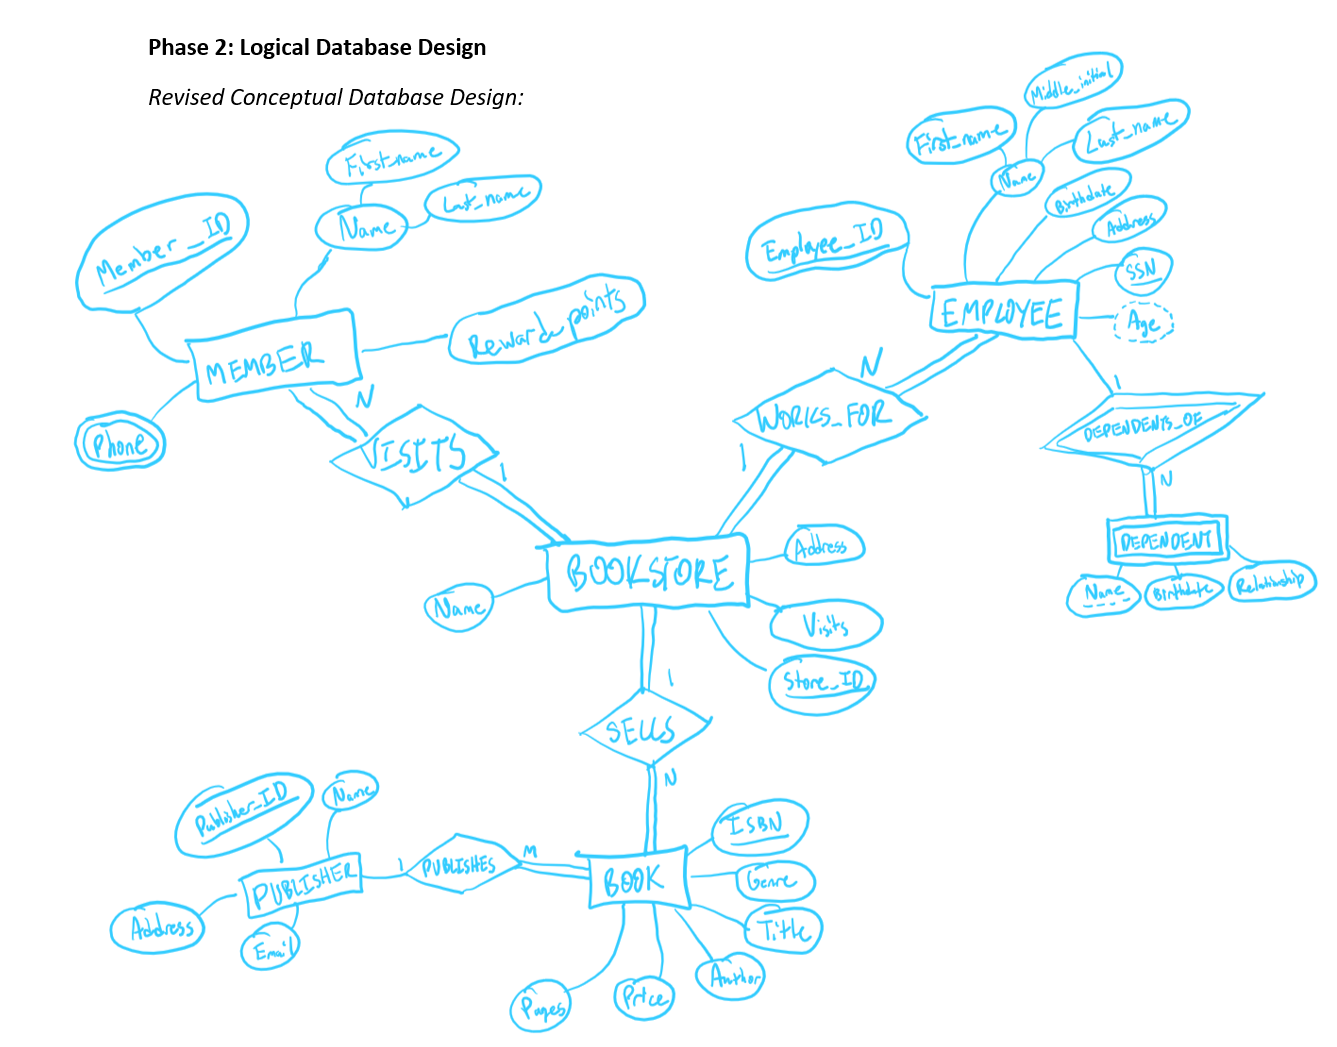 Phase 2: Logical Database Design
Revised Conceptual Database Design:
First_name
Last_name
Name
Member_ID
Reward_points
MEMBER
Phone
N
VISITS
1
Middle_initial
First_name
Last_name
Name
Birthdate
Address
Employee_ID
SSN
EMPLOYEE
Age
N
WORKS_FOR
1
1
DEPENDENTS_OF
N
DEPENDENT
Name
Birthdate
Relationship
BOOKSTORE
Address
Name
Visits
Store_ID
1
SELLS
N
Publisher_ID
Name
PUBLISHER
1
PUBLISHES
M
BOOK
Address
Email
ISBN
Genre
Title
Author
Price
Pages